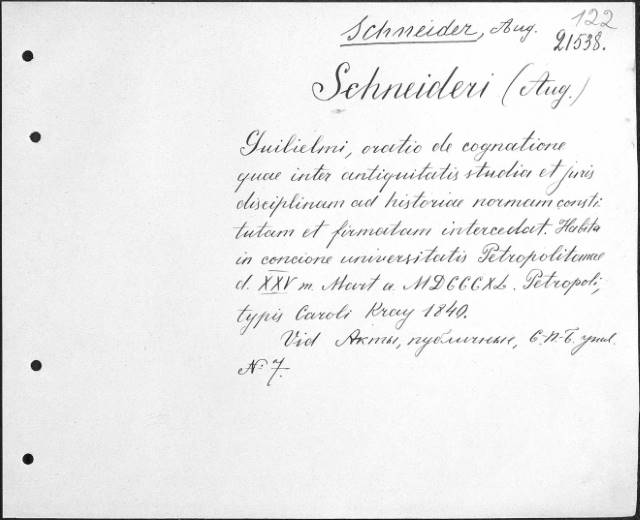 Schneider, Aug. 122
21538.
Schneideri (Aug.)
Guilielmi, oratio de cognatione
quae inter antiquitatis studia et juris
disciplinam ad historiae normam consti
tutam et firmatam intercedat. Habita
in concione universitatis Petropolitanae
d. XXV m. Mart a. MDCCCXL. Petropoli,
typis Caroli Kray 1840.
Vid Акты, публичные, С.-П.-Б. унив.
№ 7.